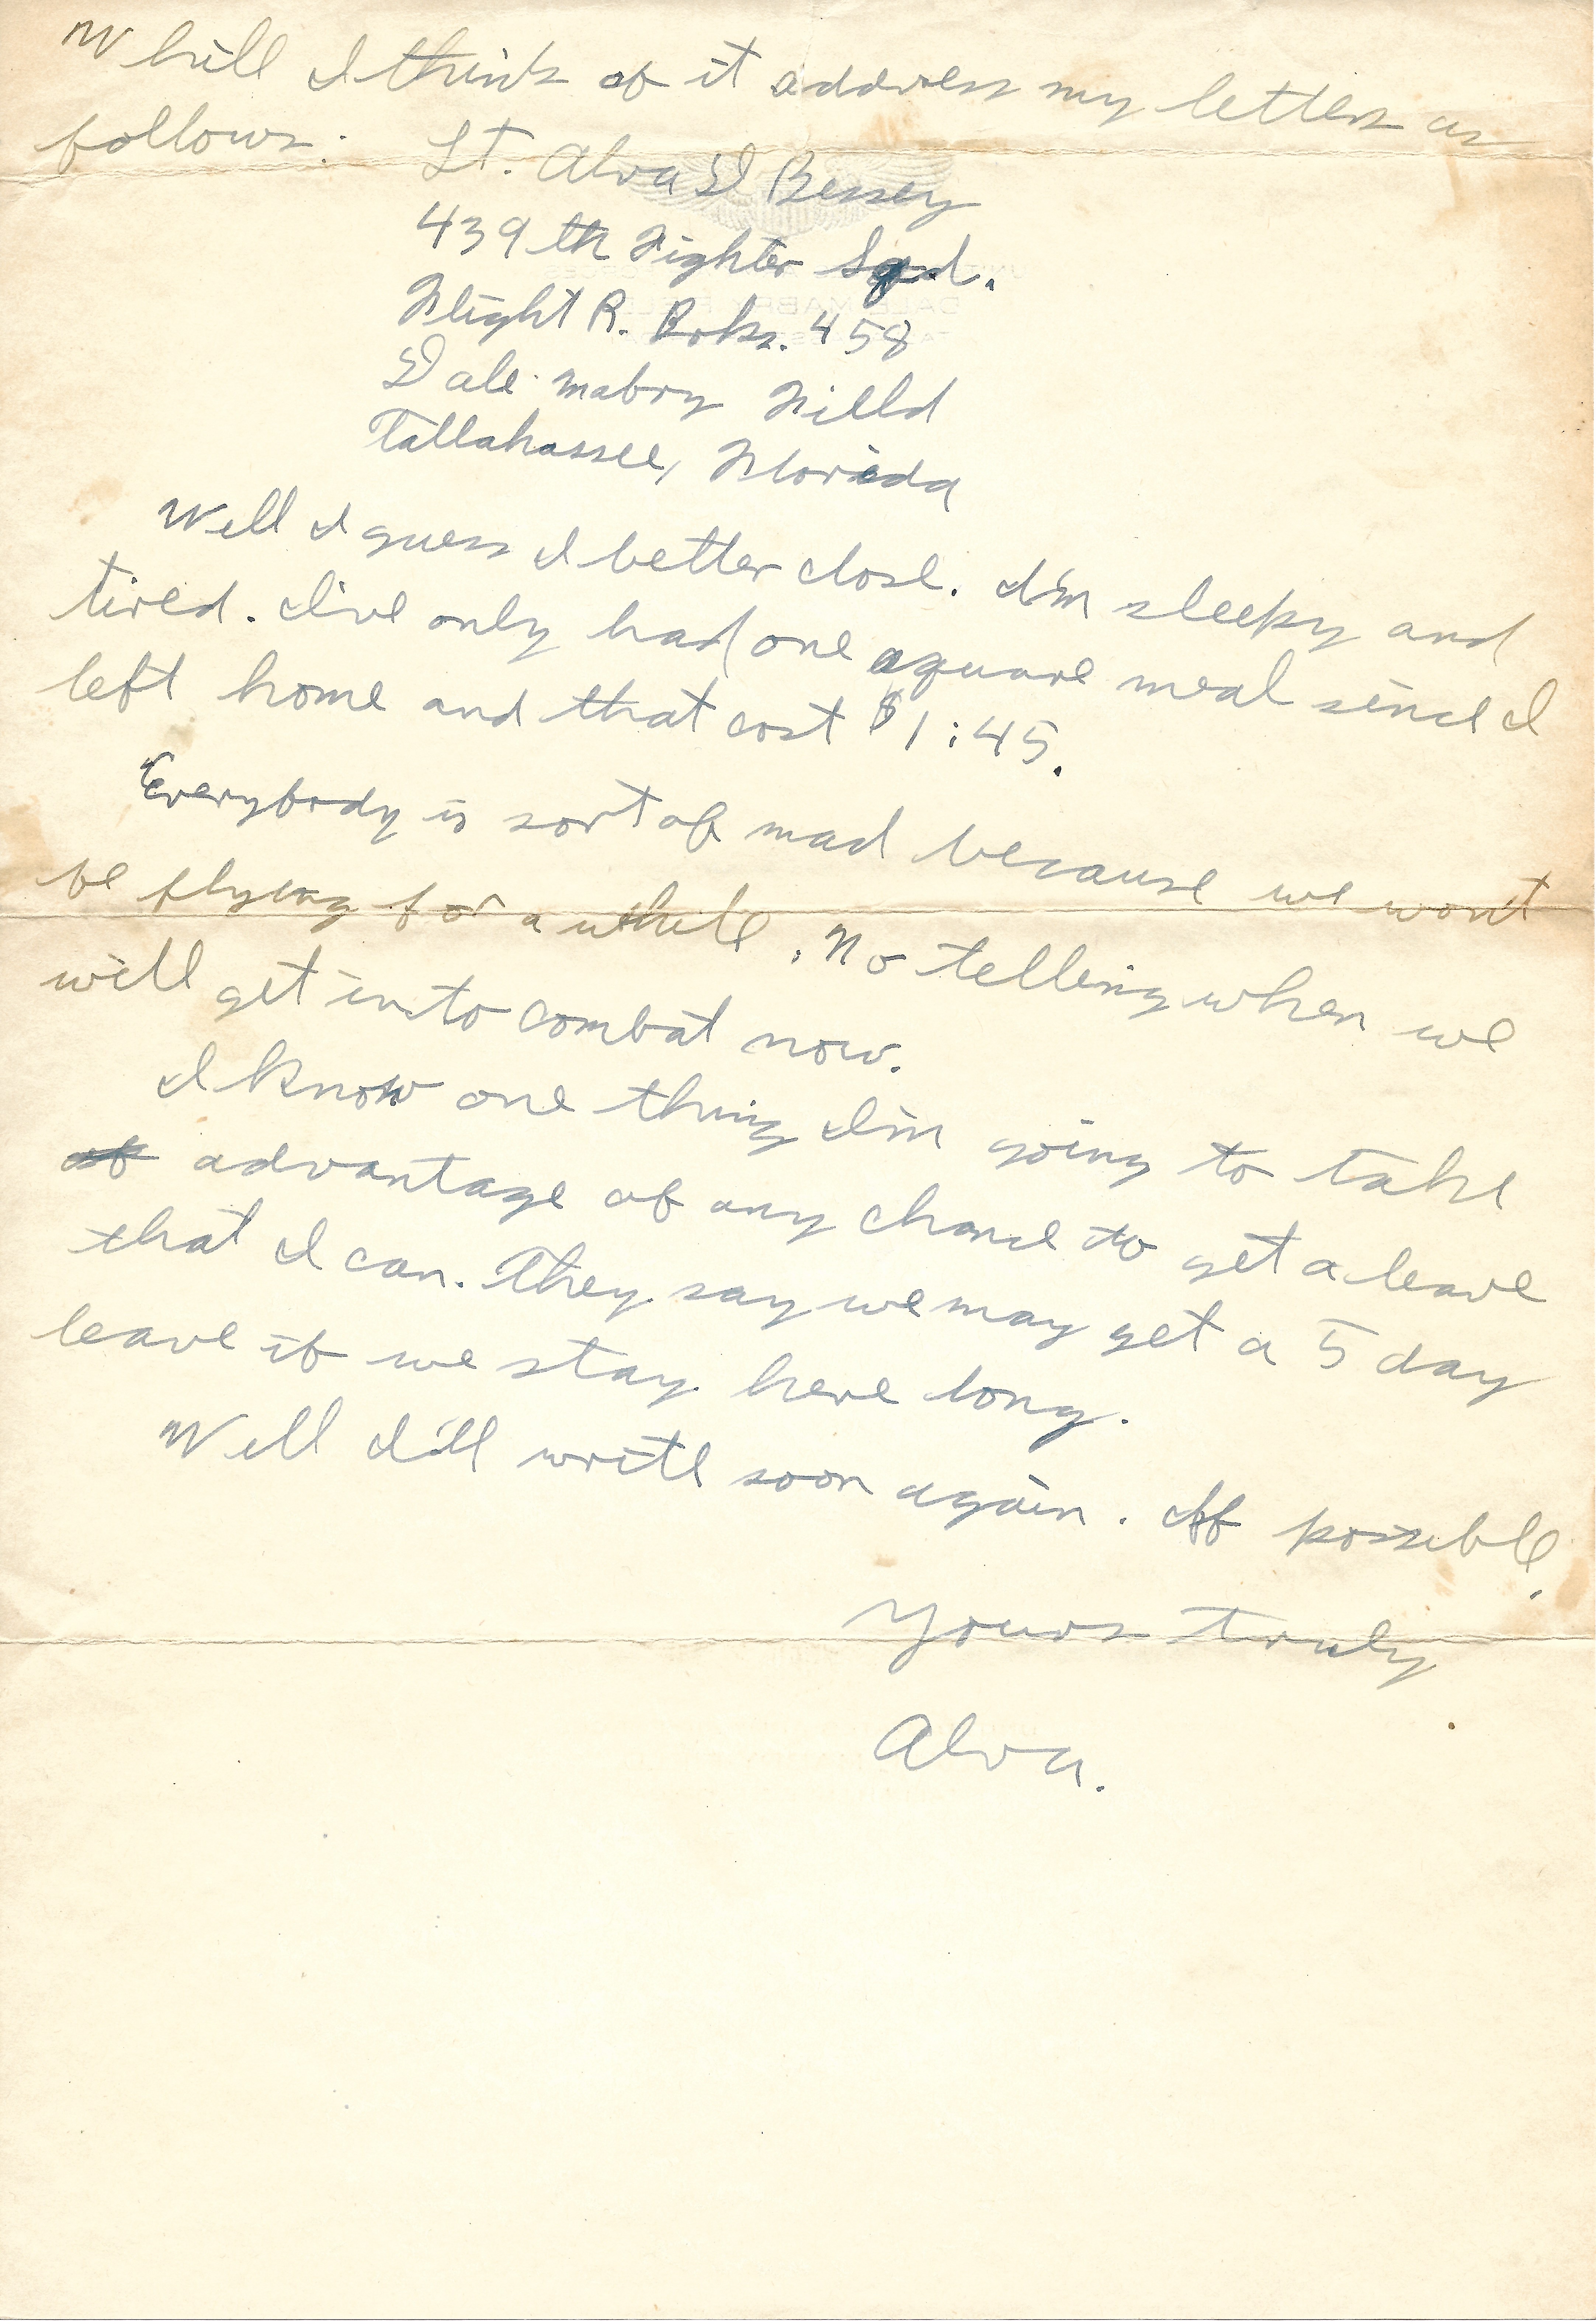 While I think of it address my letters as
follows: Lt. Alva D Bessey
439th Fighter Sqd.
Flight R. Brks. 458
Dale Mabry Field
Tallahassee, Florida
Well I guess I better close. I'm sleepy and
tired. I've only had one square meal since I
left home and that cost $1:45.
Everybody is sort of mad because we wont
be flying for a while. No telling when we
will get into combat now.
I know one thing I'm going to take
of advantage of any chance to get a leave
that I can. They say we may get a 5 day
leave if we stay here long.
Well I'll write soon again. If possible.
Yours truly
Alva.